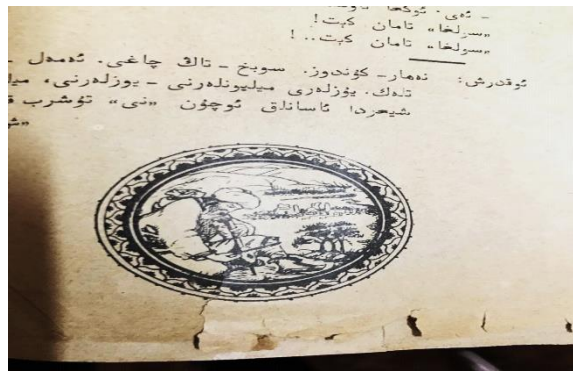 - ئەي. ئوڭغا
«سولغا» تامان كېت!
«سولغا» تامان كېت..!
ئوقدىرش: نەھار- كۈندۈز. سوبخ - تاڭ چاغى. ئەمەل -
تىلەك. يۈزلەرى مىليونلەرنى - يوزلەرنى،
شېعردا ئاسانلىق ئوچۇن «نى» تۇشرب